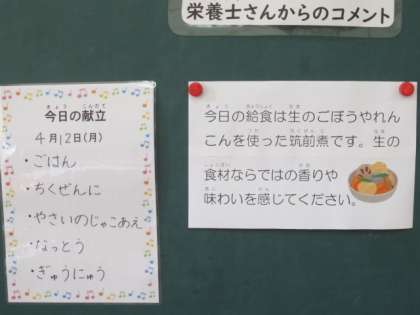 栄養士さんからのコメント
今日の献立
4月12日(月)
・ごはん
・ちくぜんに
・やさいのじゃこあえ
・なっとう
・ぎゅうにゅう
今日の給食は生のごぼうやれん
こんを使った筑前煮です。生の
食材ならではの香りや
味わいを感じてください。